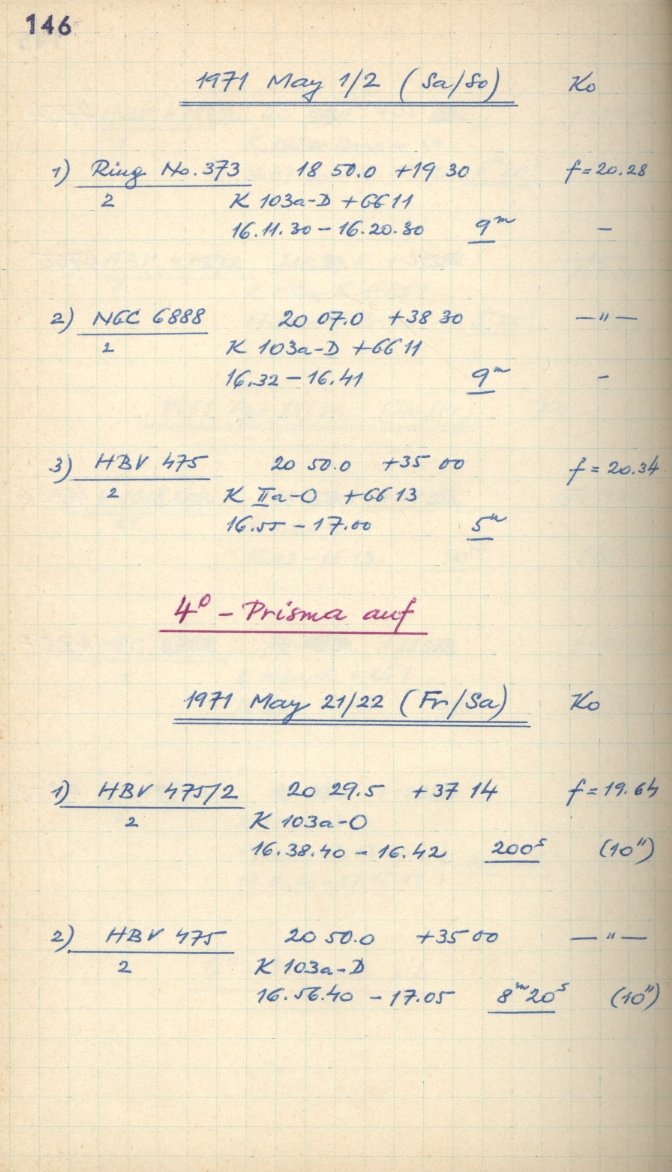 146
1971 May 1/2 (Sa/So) Ko
1) Ring No. 373 18 50.0 +19 30 f = 20.28
2 K 103a-D + GG 11
16.11.30 – 16.20.30 9m –
2) NGC 6888 20 07.0 +38 30 —"—
2 K 103a-D + GG 11
16.32 – 16.41 9m –
3) HBV 475 20 50.0 +35 00 f = 20.34
2 K IIa-O + GG 13
16.55 – 17.00 5m
4° – Prisma auf
1971 May 21/22 (Fr/Sa) Ko
1) HBV 475/2 20 29.5 +37 14 f = 19.64
2 K 103a-O
16.38.40 – 16.42 200s (10")
2) HBV 475 20 50.0 +35 00 —"—
2 K 103a-D
16.56.40 – 17.05 8m 20s (10")